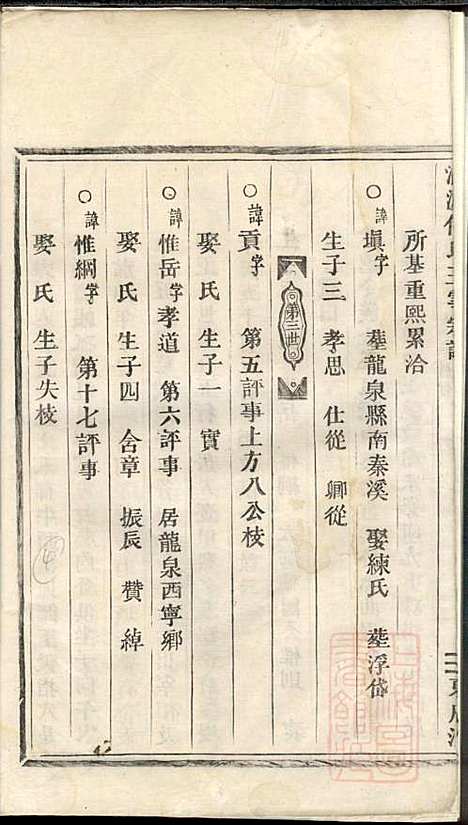 所基重熙累洽
○諱塤字 葬龍泉縣南秦溪 娶練氏 葬浮岱
生子三 孝思 仕從 卿從
第三世
○諱貢字 第五評事上方八公枝
娶 氏 生子一 實
○諱惟岳字孝道 第六評事 居龍泉西寧鄉
娶 氏 生子四 含章 振辰 贊 綽
○諱惟綱字 第十七評事
娶 氏 生子失枝